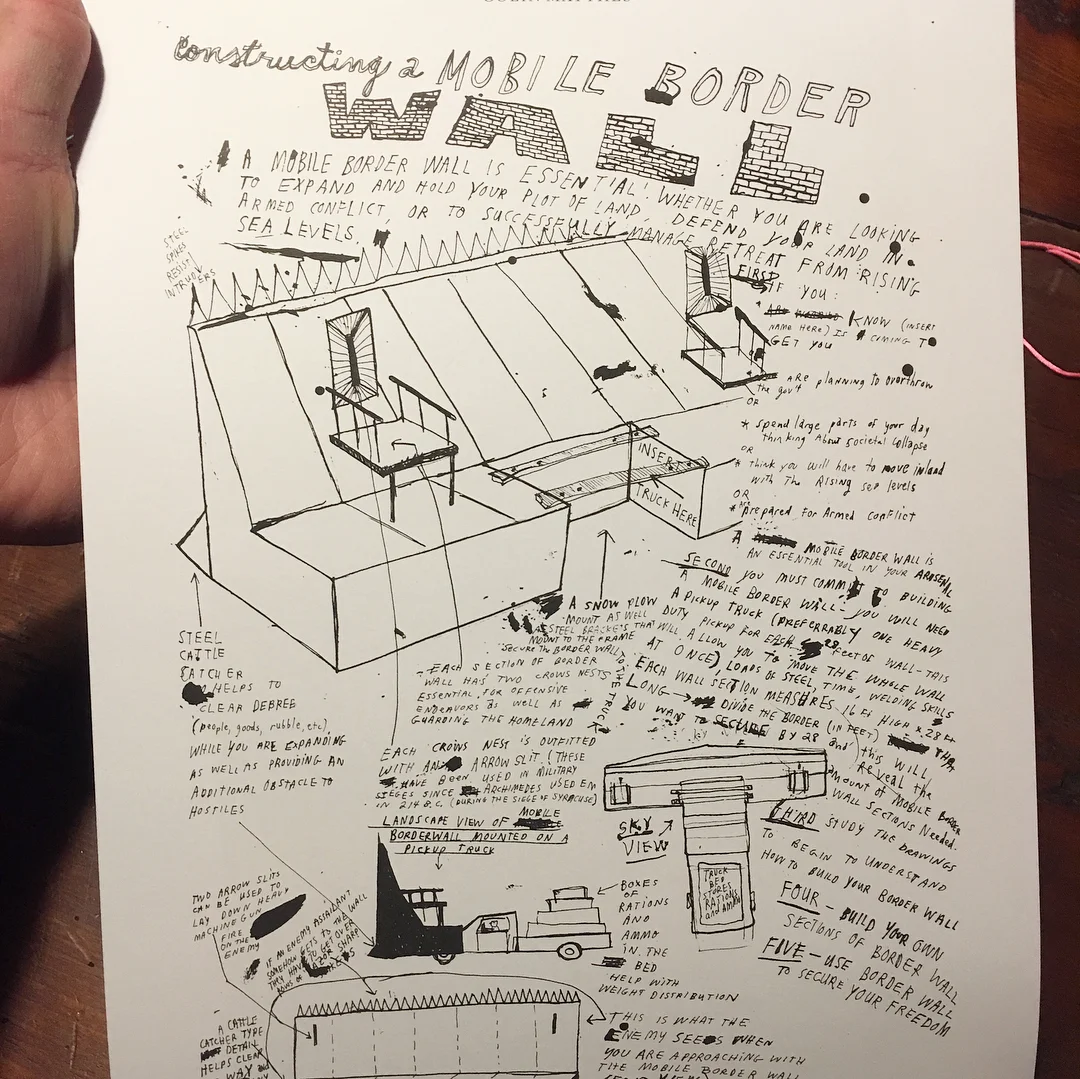 constructing a MOBILE BORDER
WALL
A MOBILE BORDER WALL IS ESSENTIAL! WHETHER YOU ARE LOOKING
TO EXPAND AND HOLD YOUR PLOT OF LAND, DEFEND YOUR LAND IN
ARMED CONFLICT, OR TO SUCCESSFULLY MANAGE RETREAT FROM RISING
SEA LEVELS
STEEL
SPIKES
RESIST
INTRUDERS
FIRST
IF YOU:
* KNOW (INSERT
NAME HERE) IS COMING TO
GET YOU
ARE planning to overthrow
the gov't
OR
* spend large parts of your day
thinking About societal collapse
OR
* think you will have to move inland
with The Rising sea levels
OR
* prepared for Armed Conflict
A MOBILE BORDER WALL IS
AN ESSENTIAL TOOL IN YOUR ARSENAL
INSERT
TRUCK HERE
SECOND YOU MUST COMMIT TO BUILDING
A MOBILE BORDER WALL - YOU WILL NEED
A PICKUP TRUCK (PREFERRABLY ONE HEAVY
DUTY PICKUP FOR EACH 28 FEET OF WALL - THIS
WILL ALLOW YOU TO MOVE THE WHOLE WALL
AT ONCE) LOADS OF STEEL, TIME, WELDING SKILLS
EACH WALL SECTION MEASURES 16 FT HIGH x 28 FT
LONG → DIVIDE THE BORDER (IN FEET) THAT
YOU WANT TO SECURE BY 28 and this WILL
REVEAL the
AMOUNT OF MOBILE BORDER
WALL SECTIONS NEEDED.
A SNOW PLOW
MOUNT AS WELL
AS STEEL BRACKETS THAT
MOUNT TO THE FRAME
SECURE THE BORDER WALL
TO THE TRUCK
STEEL
CATTLE
CATCHER
HELPS TO
CLEAR DEBREE
(people, goods, rubble, etc)
WHILE YOU ARE EXPANDING
AS WELL AS PROVIDING AN
ADDITIONAL OBSTACLE TO
HOSTILES
EACH SECTION OF BORDER
WALL HAS TWO CROWS NESTS
ESSENTIAL FOR OFFENSIVE
ENDEAVORS AS WELL AS
GUARDING THE HOMELAND
EACH CROWS NEST IS OUTFITTED
WITH AN ARROW SLIT. (THESE
HAVE BEEN USED IN MILITARY
SIEGES SINCE ARCHIMEDES USED EM
IN 214 B.C. (DURING THE SIEGE OF SYRACUSE)
LANDSCAPE VIEW OF MOBILE
BORDERWALL MOUNTED ON A
PICKUP TRUCK
SKY
VIEW
TRUCK
BED
STORES
RATIONS
and AMMO
THIRD STUDY THE DRAWINGS
TO BEGIN TO UNDERSTAND
HOW TO BUILD YOUR BORDER WALL
FOUR - BUILD YOUR OWN
SECTIONS OF BORDER WALL
FIVE - USE BORDER WALL
TO SECURE YOUR FREEDOM
TWO ARROW SLITS
CAN BE USED TO
LAY DOWN HEAVY
MACHINE GUN
FIRE
ON THE
ENEMY
IF AN ENEMY ASSAILANT
SOMEHOW GETS TO THE WALL
THEY HAVE TO GET OVER
ROWS OF RAZOR SHARP
BOXES
OF
RATIONS
AND
AMMO
IN THE
BED
HELP WITH
WEIGHT DISTRIBUTION
A CATTLE
CATCHER TYPE
DETAIL
HELPS CLEAR
WAY
THIS IS WHAT THE
ENEMY SEES WHEN
YOU ARE APPROACHING WITH
THE MOBILE BORDER WALL